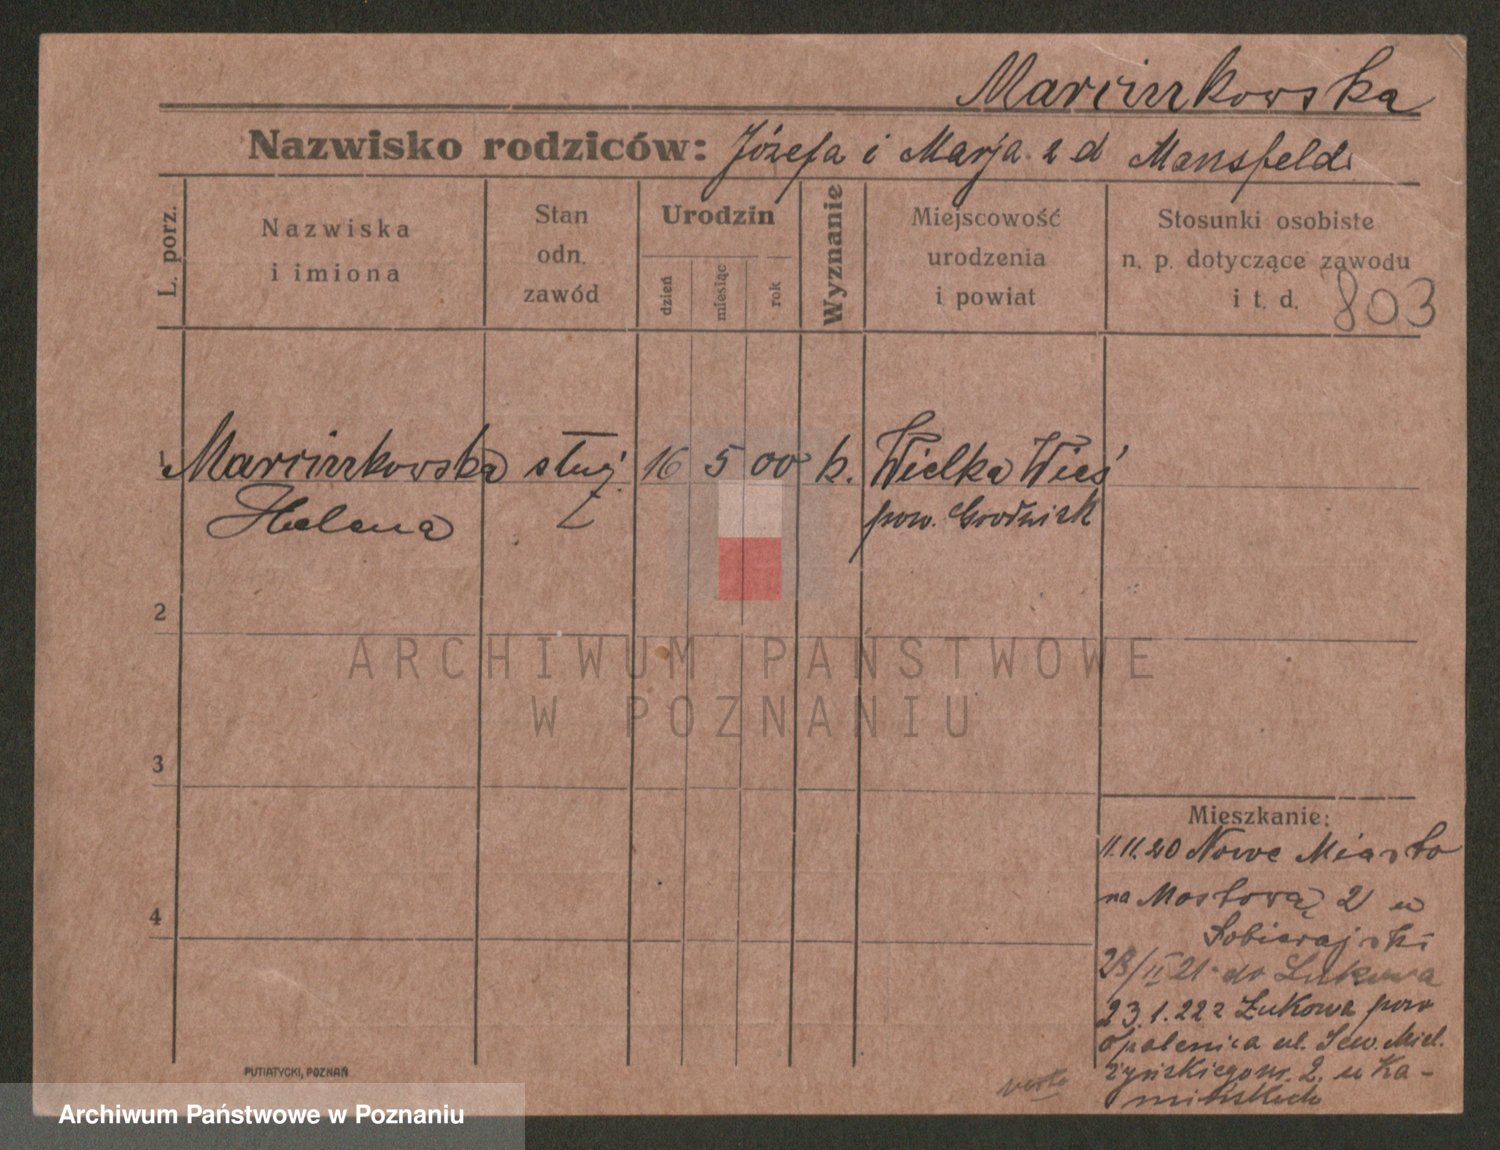 Marcinkowska
Nazwisko rodziców: Józefa i Marja z d Mansfeld
L. porz.
Nazwiska
i imiona
Stan
odn.
zawód
Urodzin
dzień
miesiąc
rok
Wyznanie
Miejscowość
urodzenia
i powiat
Stosunki osobiste
n. p. dotyczące zawodu
i t. d.
803
1 Marcinkowska służ. 16 5 00 k. Wielka Wieś
Helena pow. Grodzisk
2
ARCHIWUM PAŃSTWOWE
W POZNANIU
3
4
Mieszkanie:
11.11.20 Nowe Miasto
na Mostową 2 u
Sobierajski
23/II 21 do Łukowa
23.1.22 z Łukowa pow
Opalenica ul. Sew. Miel.
żyńskiego nr. 2. u Ka-
mińskich
verte
PUTIATYCKI, POZNAŃ
Archiwum Państwowe w Poznaniu